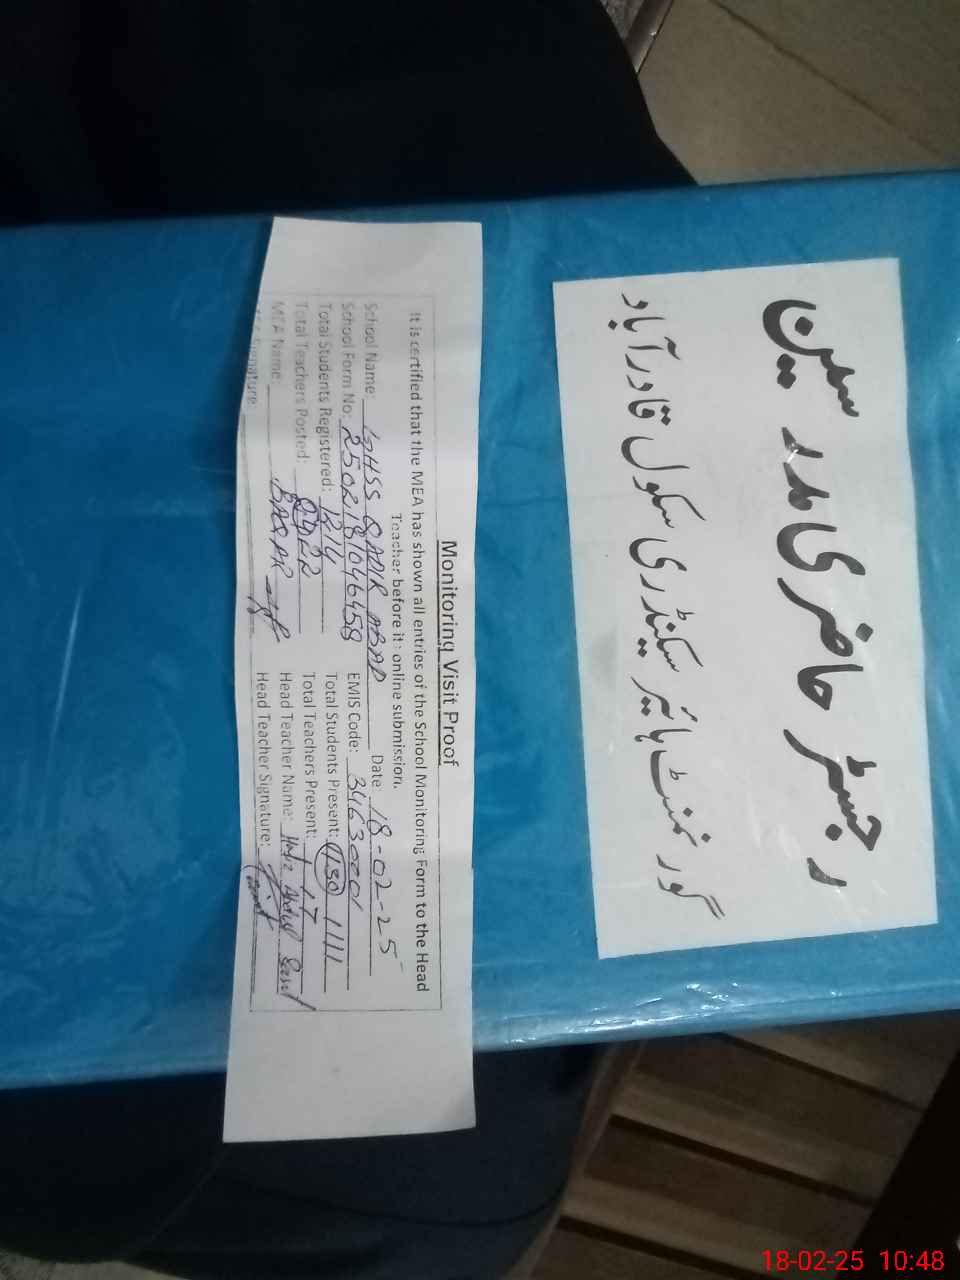 رجسٹر حاضری مدرسین
گورنمنٹ ہائیر سیکنڈری سکول قادر آباد
Monitoring Visit Proof
It is certified that the MEA has shown all entries of the School Monitoring Form to the Head
Teacher before it: online submission.
School Name: GHSS QADIR ABAD Date 18-02-25
School Form No: 2502181046458 EMIS Code: 3463000
Total Students Registered: 1214 Total Students Present: 430 1111
Total Teachers Posted: 22 Total Teachers Present: 17
MEA Name: BABAR Head Teacher Name: Hafiz Abdul
MEA Signature: Head Teacher Signature:
18-02-25 10:48